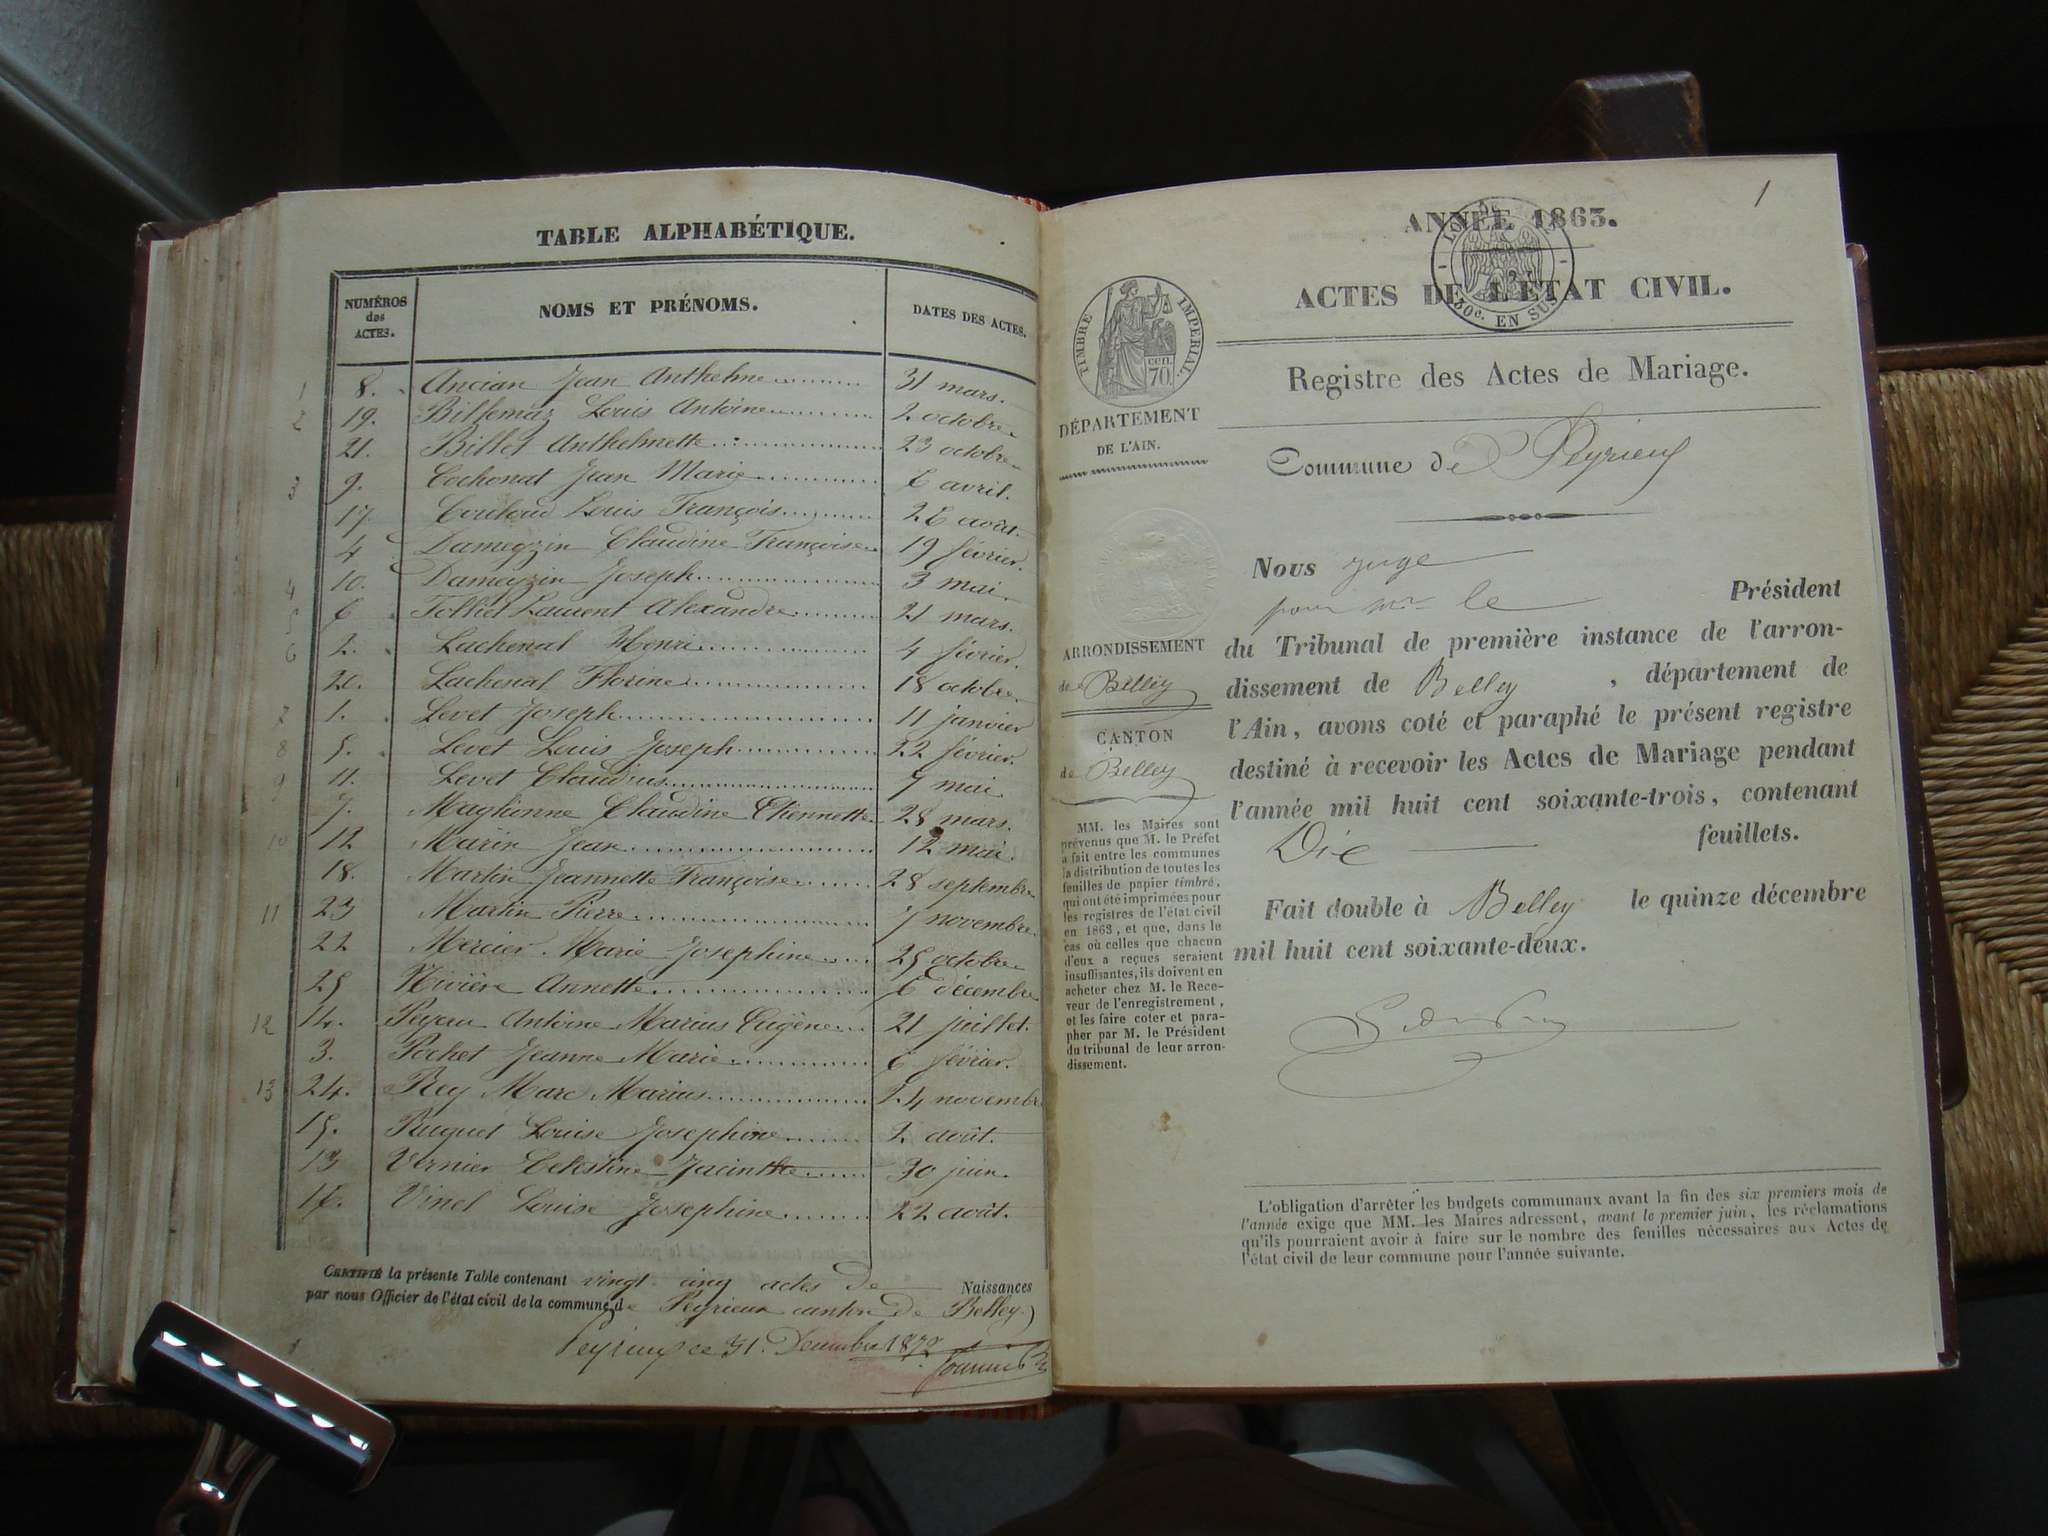 TABLE ALPHABÉTIQUE.
NUMÉROS des ACTES. NOMS ET PRÉNOMS. DATES DES ACTES.
1 8. Ancian Jean Anthelme 31 mars.
2 19. Billemaz Louis Antoine 2 octobre
21. Billet Anthelmette 23 octobre
3 9. Cochonat Jean Marie 6 avril.
17. Couloud Louis François 26 août.
4 Dameyzin Claudine Françoise 19 février.
4 10. Dameyzin Joseph 3 mai.
5 6 Tolliet Laurent Alexandre 21 mars.
6 2. Lachenal Henri 4 février.
20. Lachenal Florine 18 octobre
7 1. Levet Joseph 11 janvier
8 5. Levet Louis Joseph 22 février.
9 11. Levet Claudius 9 mai.
7. Claudine Etiennette 28 mars.
10 12 Marin Jean 12 mai.
18. Martin Jeannette Françoise 28 septembre
11 23 Martin Pierre 7 novembre
22 Mercier Marie Josephine 25 octobre
25 Rivière Annette 6 décembre
12 14. Antoine Marius Eugène 21 juillet.
3. Pochet Jeanne Marie 6 février.
13 24. Rey Marc Marius 24 novembre
15. Ruguet Louise Josephine 2 août.
13 Vernier Celestine Jacinthe 30 juin.
16. Vinel Louise Josephine 22 août.
CERTIFIÉ la présente Table contenant vingt cinq actes de Naissances
par nous Officier de l'état civil de la commune de Peyrieux canton de Belley.
Peyrieux ce 31. Décembre 1872
1
ANNÉE 1863.
ACTES DE L'ÉTAT CIVIL.
50c. EN SUS
TIMBRE IMPERIAL
cen. 70
Registre des Actes de Mariage.
DÉPARTEMENT
DE L'AIN.
Commune de Peyrieux
ARRONDISSEMENT
de Belley
CANTON
de Belley
MM. les Maires sont
prévenus que M. le Préfet
a fait entre les communes
la distribution de toutes les
feuilles de papier timbré,
qui ont été imprimées pour
les registres de l'état civil
en 1863, et que, dans le
cas où celles que chacun
d'eux a reçues seraient
insuffisantes, ils doivent en
acheter chez M. le Rece-
veur de l'enregistrement,
et les faire coter et para-
pher par M. le Président
du tribunal de leur arron-
dissement.
Nous juge
pour mr le Président
du Tribunal de première instance de l'arron-
dissement de Belley , département de
l'Ain, avons coté et paraphé le présent registre
destiné à recevoir les Actes de Mariage pendant
l'année mil huit cent soixante-trois, contenant
Dix feuillets.
Fait double à Belley le quinze décembre
mil huit cent soixante-deux.
L'obligation d'arrêter les budgets communaux avant la fin des six premiers mois de
l'année exige que MM. les Maires adressent, avant le premier juin, les réclamations
qu'ils pourraient avoir à faire sur le nombre des feuilles nécessaires aux Actes de
l'état civil de leur commune pour l'année suivante.